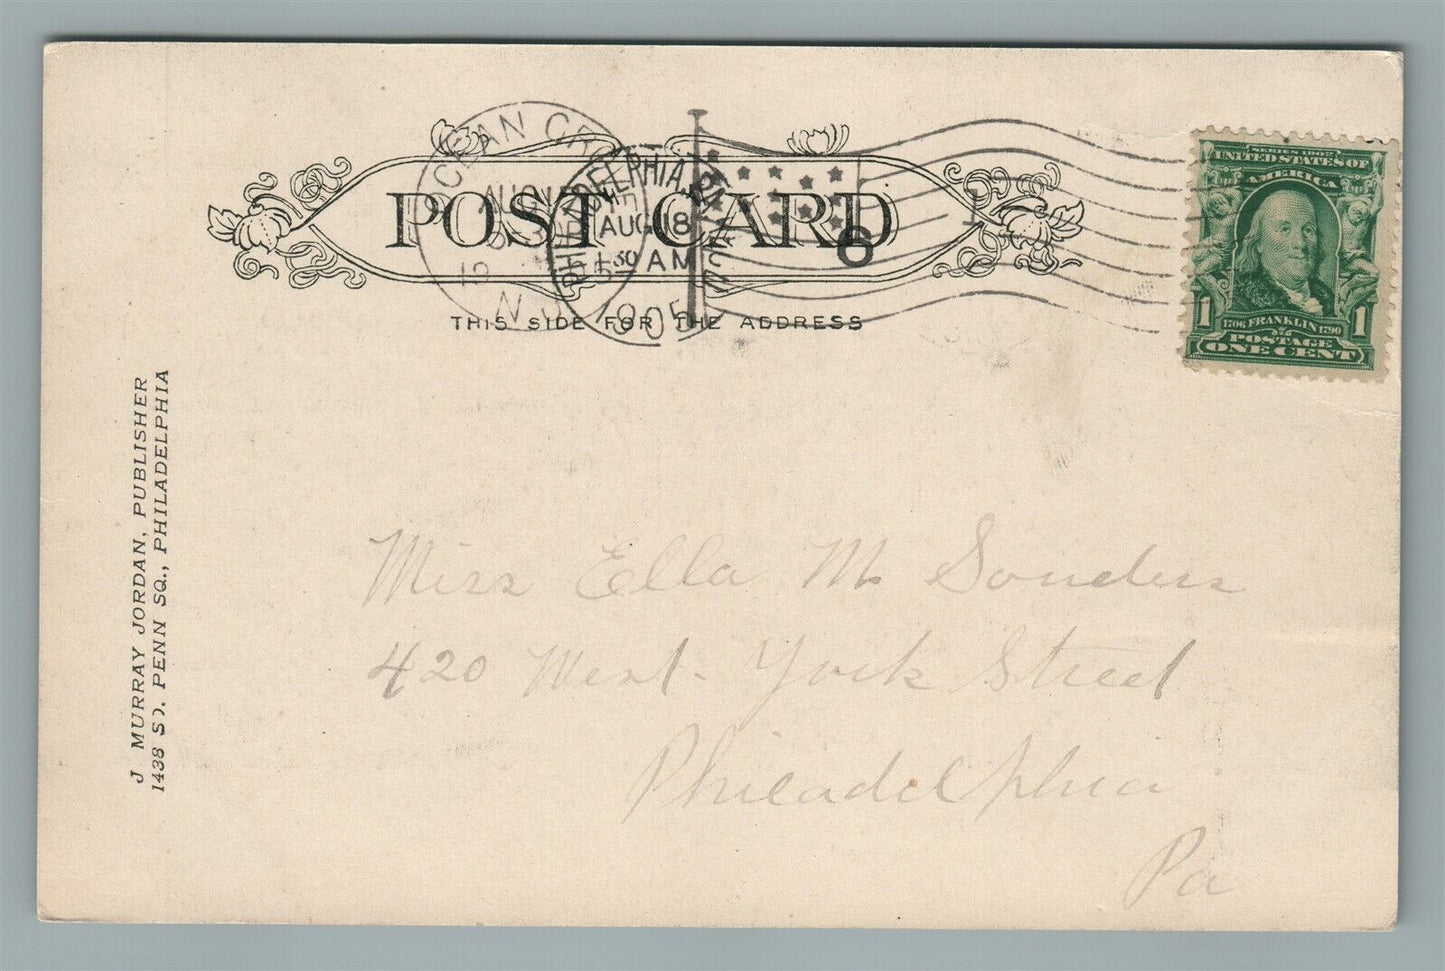 POST CARD
THIS SIDE FOR THE ADDRESS
OCEAN GROVE
N.J.
PHILADELPHIA, PA.
AUG 18
130 AM
1905
6
1
SERIES 1902
UNITED STATES OF
AMERICA
1 1
1706 FRANKLIN 1790
POSTAGE
ONE CENT
J MURRAY JORDAN, PUBLISHER
1438 SO. PENN SQ., PHILADELPHIA
Miss Ella M Souders
420 West York Street
Philadelphia
Pa